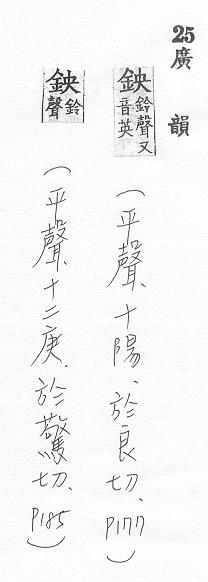 25廣韻
鉠鈴聲又音英
(平聲、十陽、於良切、P177)
鉠鈴聲
(平聲、十二庚、於驚切、P185)